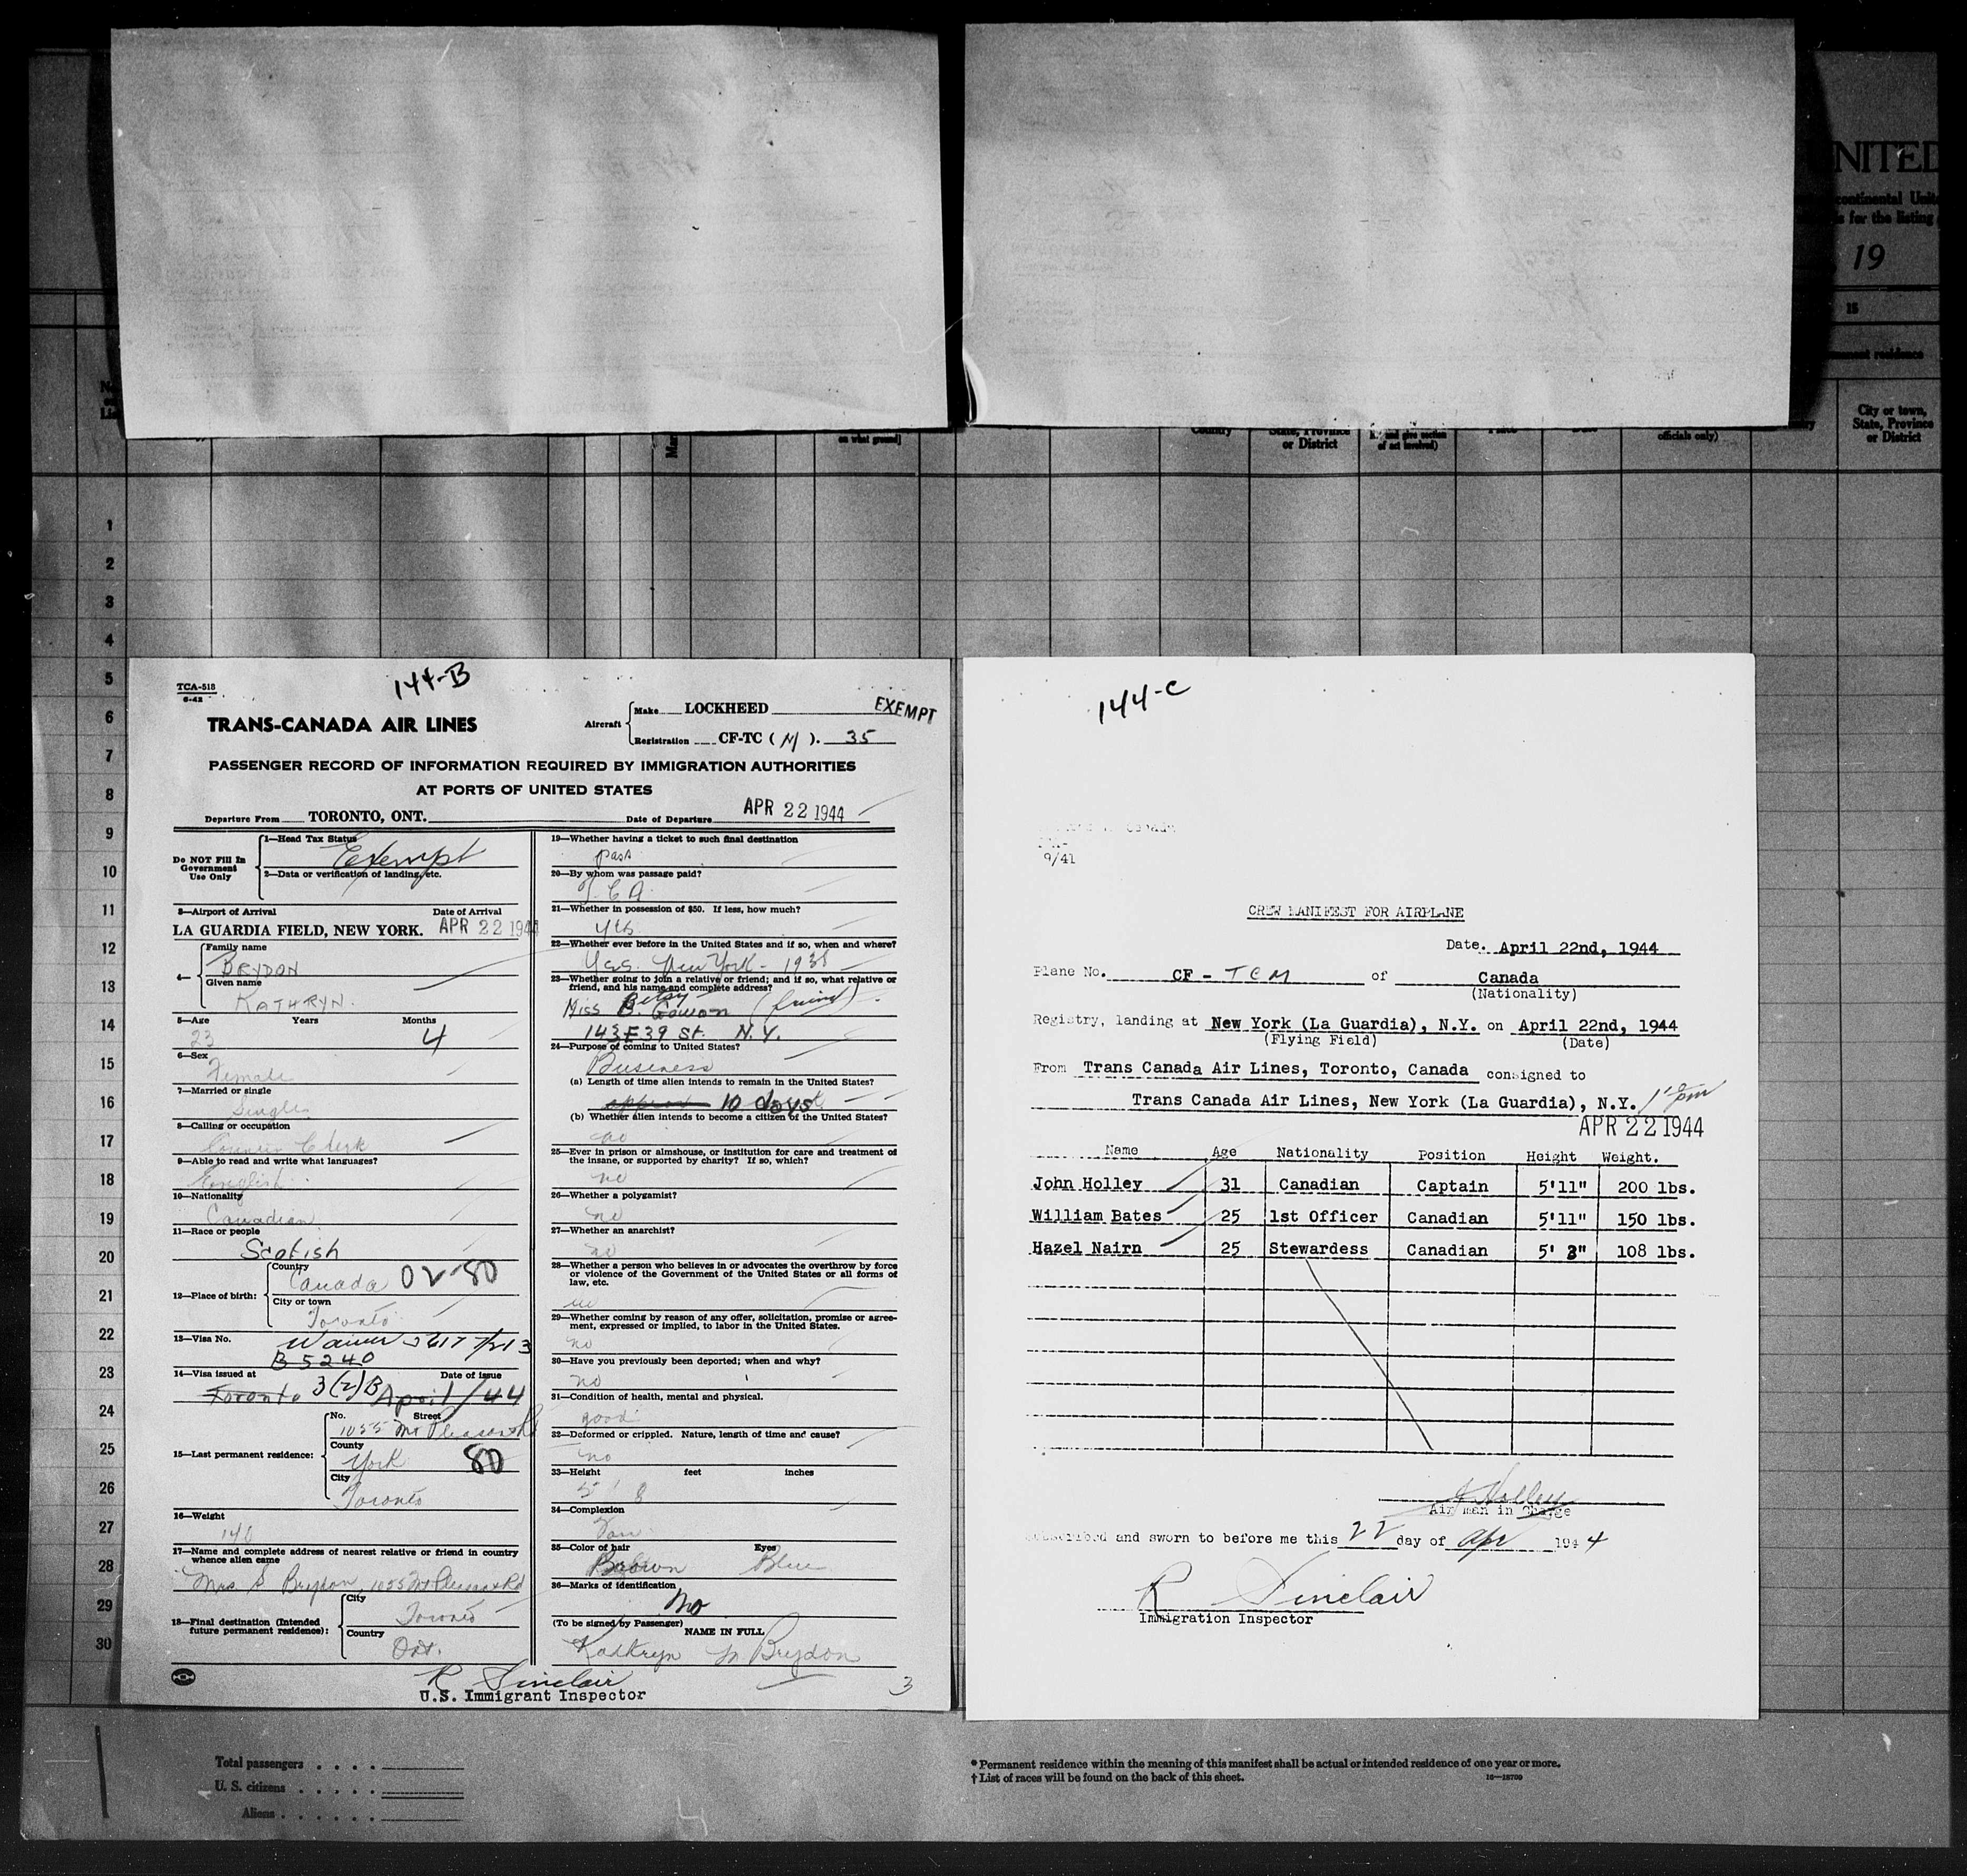 NITED
continental Unit
s for the listing
19
15
ment residence
City or town,
State, Province
or District
on what ground]
Country
State, Province
or District
of act involved)
officials only)
1
2
3
4
5
6
7
8
9
10
11
12
13
14
15
16
17
18
19
20
21
22
23
24
25
26
27
28
29
30
144-B
TCA-518
6-42
TRANS-CANADA AIR LINES
Aircraft
Make LOCKHEED
EXEMPT
Registration CF-TC ( M ). 35
PASSENGER RECORD OF INFORMATION REQUIRED BY IMMIGRATION AUTHORITIES
AT PORTS OF UNITED STATES
Departure From TORONTO, ONT. Date of Departure APR 22 1944
Do NOT Fill In
Government
Use Only
1—Head Tax Status
Exempt
2—Data or verification of landing, etc.
3—Airport of Arrival Date of Arrival
LA GUARDIA FIELD, NEW YORK. APR 22 1944
4—
Family name
BRYDON
Given name
KATHRYN.
5—Age Years Months
23 4
6—Sex
Female
7—Married or single
Single
8—Calling or occupation
Clerk
9—Able to read and write what languages?
English
10—Nationality
Canadian
11—Race or people
Scotish
12—Place of birth:
Country
Canada 02-80
City or town
Toronto
13—Visa No.
B5240
14—Visa issued at Date of issue
Toronto 3(2)B April/44
15—Last permanent residence:
No. Street
1055 Mt Pleasant Rd
County
York 80
City
Toronto
16—Weight
140
17—Name and complete address of nearest relative or friend in country
whence alien came
Mrs S Brydon, 1055 Mt Pleasant Rd
18—Final destination (Intended
future permanent residence):
City
Toronto
Country
Ont.
19—Whether having a ticket to such final destination
pass
20—By whom was passage paid?
T.C.A.
21—Whether in possession of $50. If less, how much?
yes
22—Whether ever before in the United States and if so, when and where?
Yes. New York - 1938
23—Whether going to join a relative or friend; and if so, what relative or
friend, and his name and complete address?
Betsy
Miss B. Gowan (friend).
143 E 39 St. N.Y.
24—Purpose of coming to United States?
Business
(a) Length of time alien intends to remain in the United States?
approx 10 days
(b) Whether alien intends to become a citizen of the United States?
no
25—Ever in prison or almshouse, or institution for care and treatment of
the insane, or supported by charity? If so, which?
no
26—Whether a polygamist?
no
27—Whether an anarchist?
no
28—Whether a person who believes in or advocates the overthrow by force
or violence of the Government of the United States or all forms of
law, etc.
no
29—Whether coming by reason of any offer, solicitation, promise or agree-
ment, expressed or implied, to labor in the United States.
no
30—Have you previously been deported; when and why?
no
31—Condition of health, mental and physical.
good
32—Deformed or crippled. Nature, length of time and cause?
no
33—Height feet inches
5' 8
34—Complexion
Fair
35—Color of hair Eyes
Brown Blue
36—Marks of identification
no
(To be signed by Passenger)
NAME IN FULL
Kathryn M. Brydon
R Sinclair
U.S. Immigrant Inspector
3
144-C
9/41
CREW MANIFEST FOR AIRPLANE
Date. April 22nd, 1944
Plane No. CF - TCM of Canada
(Nationality)
Registry, landing at New York (La Guardia), N.Y. on April 22nd, 1944
(Flying Field) (Date)
From Trans Canada Air Lines, Toronto, Canada consigned to
Trans Canada Air Lines, New York (La Guardia), N.Y.
APR 22 1944
Name Age Nationality Position Height Weight.
John Holley 31 Canadian Captain 5'11" 200 lbs.
William Bates 25 1st Officer Canadian 5'11" 150 lbs.
Hazel Nairn 25 Stewardess Canadian 5' 3" 108 lbs.
J Holley
Air man in Charge
Subscribed and sworn to before me this 22 day of Apr 1944
R Sinclair
Immigration Inspector
Total passengers
U. S. citizens
Aliens
* Permanent residence within the meaning of this manifest shall be actual or intended residence of one year or more.
† List of races will be found on the back of this sheet.
16—18700